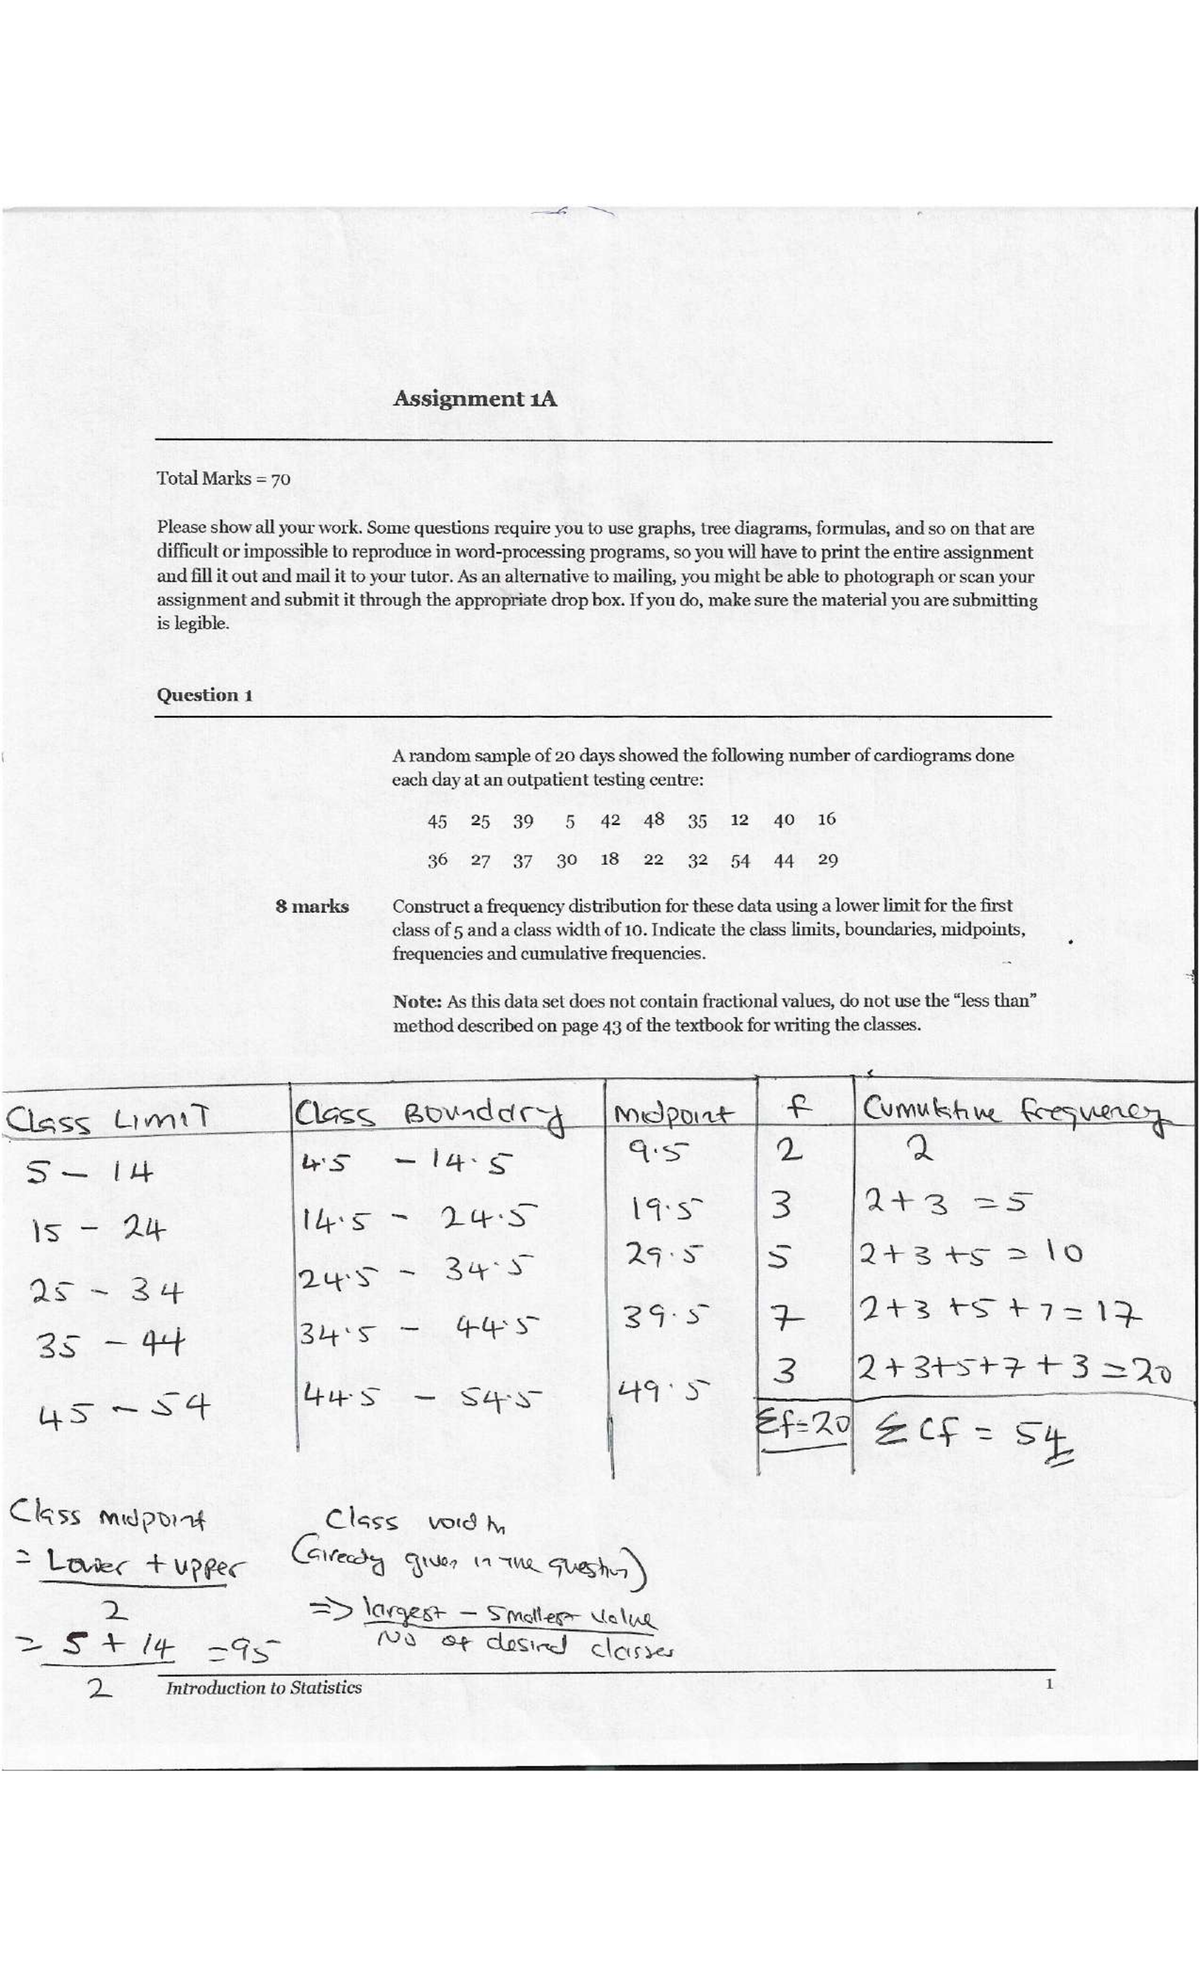 Assignment 1A
Total Marks = 70
Please show all your work. Some questions require you to use graphs, tree diagrams, formulas, and so on that are
difficult or impossible to reproduce in word-processing programs, so you will have to print the entire assignment
and fill it out and mail it to your tutor. As an alternative to mailing, you might be able to photograph or scan your
assignment and submit it through the appropriate drop box. If you do, make sure the material you are submitting
is legible.
Question 1
A random sample of 20 days showed the following number of cardiograms done
each day at an outpatient testing centre:
45 25 39 5 42 48 35 12 40 16
36 27 37 30 18 22 32 54 44 29
8 marks Construct a frequency distribution for these data using a lower limit for the first
class of 5 and a class width of 10. Indicate the class limits, boundaries, midpoints,
frequencies and cumulative frequencies.
Note: As this data set does not contain fractional values, do not use the “less than”
method described on page 43 of the textbook for writing the classes.
Class LIMIT Class Boundary Midpoint f Cumulative frequency
5 – 14 4.5 – 14.5 9.5 2 2
15 – 24 14.5 – 24.5 19.5 3 2+3 =5
25 – 34 24.5 – 34.5 29.5 5 2+3+5 = 10
35 – 44 34.5 – 44.5 39.5 7 2+3+5+7=17
45 – 54 44.5 – 54.5 49.5 3 2+3+5+7+3=20
Σf=20 Σcf = 54
Class midpoint
= Lower + upper
2
= 5 + 14 =95
2
Class
(already given in the question)
=> largest – smallest value
No of desired classes
Introduction to Statistics 1